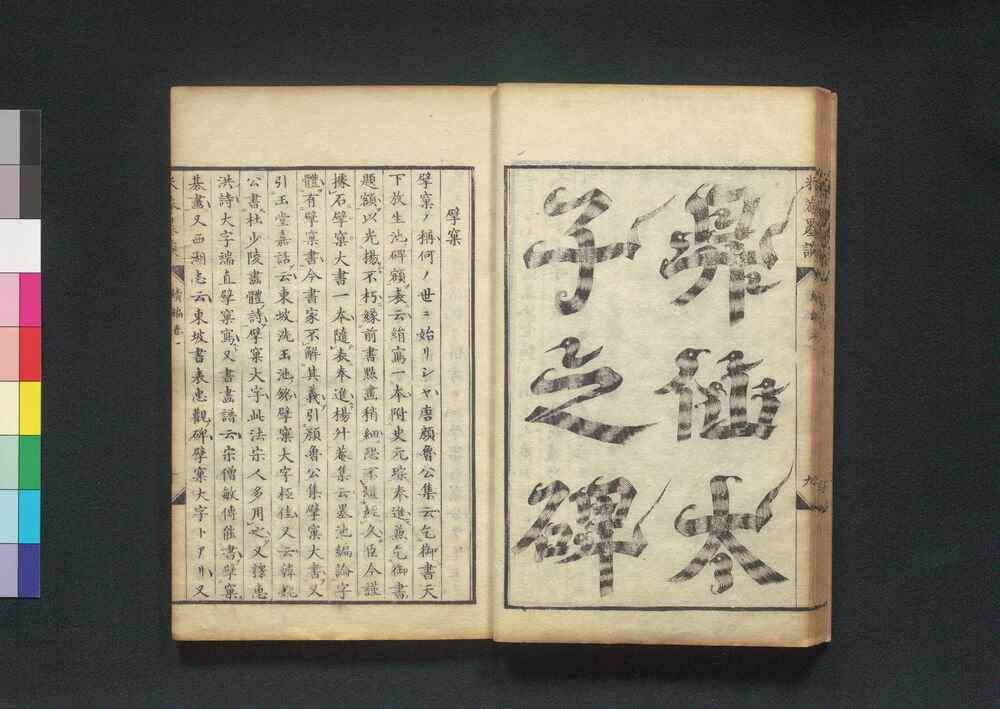 米菴墨談
昇仙太
子之碑
擘窠
擘窠ノ稱何ノ世ニ始リシヤ唐顔魯公集云乞御書天
下放生池碑額表云絹寫一本附史元琮奉進兼乞御書
題額以光揚不朽緣前書點畫稍細恐不堪經久臣今謹
據石擘窠大書一本隨表奉進楊升菴集云墨池編論字
體有擘窠書今書家不解其義引顔魯公集擘窠大書又
引玉堂嘉話云東坡洗玉池銘擘窠大字極佳又云韓魏
公書杜少陵畫體詩擘窠大字此法宋人多用之又釋恵
洪詩大字端直擘窠寫又書畫譜云宋僧敏傳能書擘窠
棊畫又西湖志云東坡書表忠觀碑擘窠大字トアリ又
續編卷一